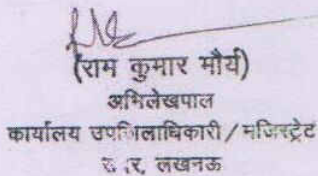 (राम कुमार मौर्य)
अभिलेखपाल
कार्यालय उपजिलाधिकारी / मजिस्ट्रेट
लखनऊ